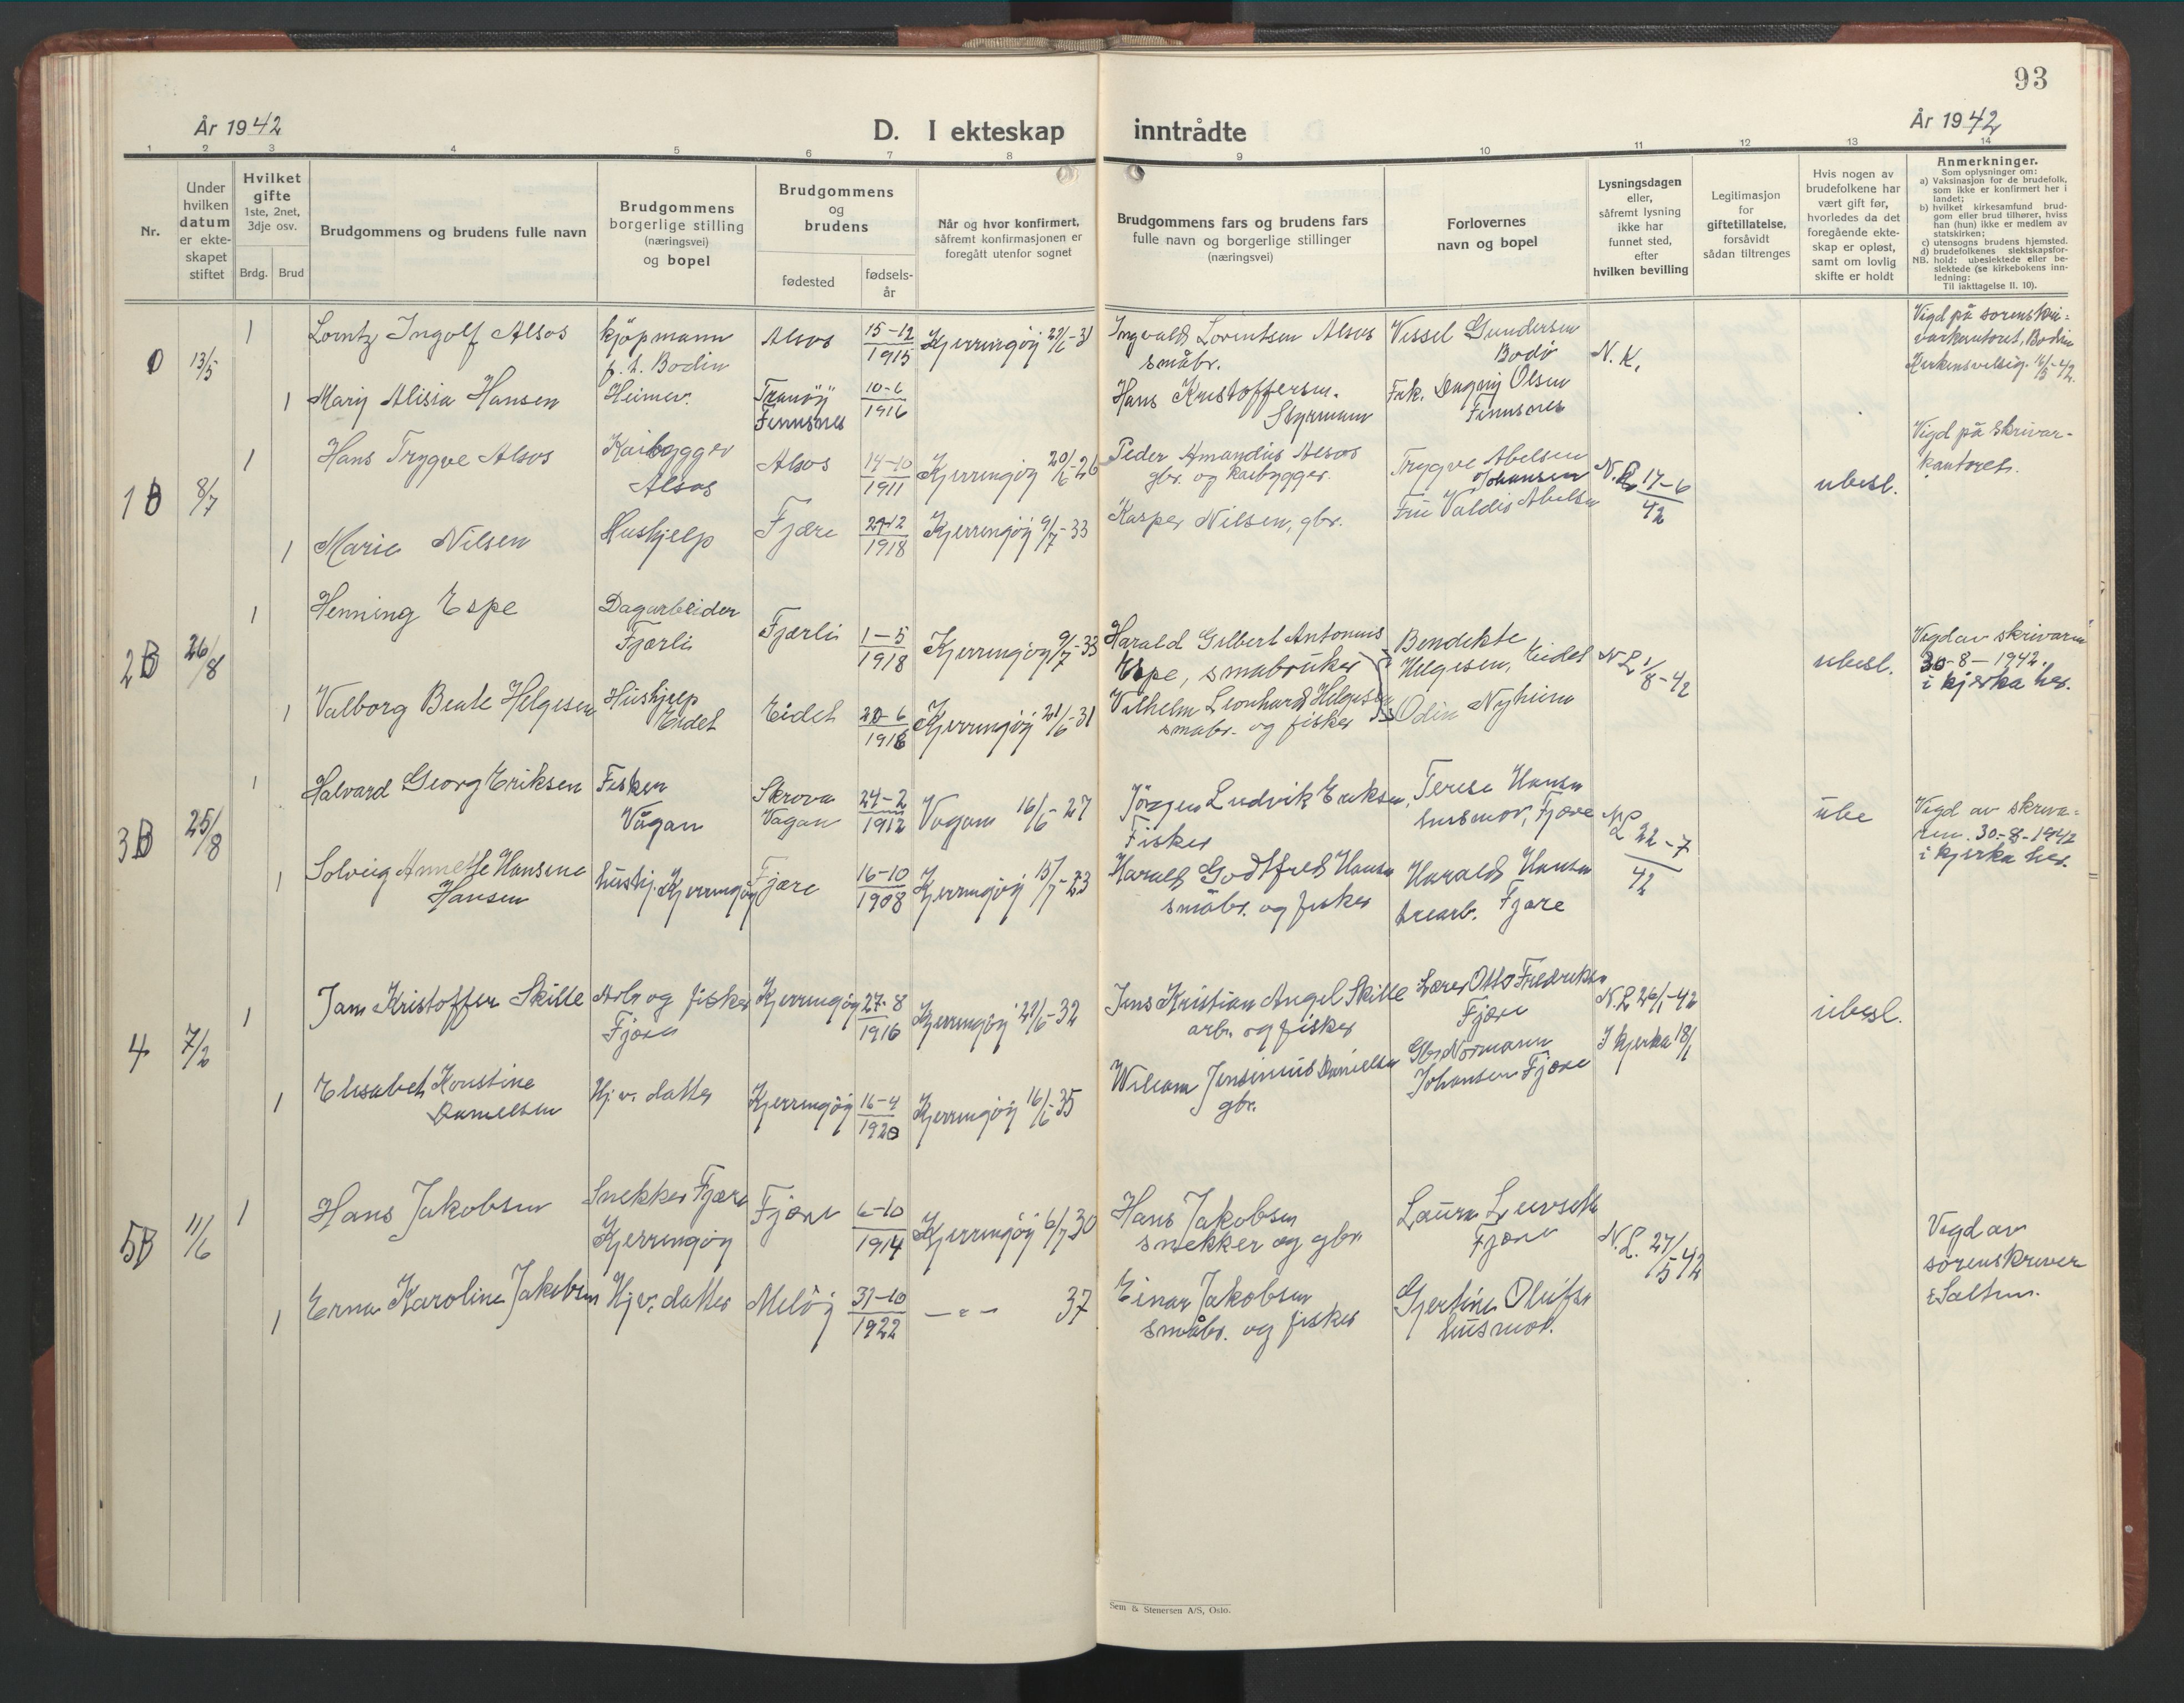 93
År 1942
D. I ekteskap inntrådte
År 1942
1 2 3 4 5 6 7 8 9 10 11 12 13 14
Nr.
Under
hvilken
datum
er ekte-
skapet
stiftet
Hvilket
gifte
1ste, 2net,
3dje osv.
Brdg. Brud
Brudgommens og brudens fulle navn
Brudgommens
borgerlige stilling
(næringsvei)
og bopel
Brudgommens
og
brudens
fødested
fødsels-
år
Når og hvor konfirmert,
såfremt konfirmasjonen er
foregått utenfor sognet
Brudgommens fars og brudens fars
fulle navn og borgerlige stillinger
(næringsvei)
Forlovernes
navn og bopel
Lysningsdagen
eller,
såfremt lysning
ikke har
funnet sted,
efter
hvilken bevilling
Legitimasjon
for
giftetillatelse,
forsåvidt
sådan tiltrenges
Hvis nogen av
brudefolkene har
vært gift før,
hvorledes da det
foregående ekte-
skap er opløst,
samt om lovlig
skifte er holdt
Anmerkninger.
Som oplysninger om:
a) Vaksinasjon for de brudefolk,
som ikke er konfirmert her i
landet;
b) hvilket kirkesamfund brud-
gom eller brud tilhører, hviss
han (hun) ikke er medlem av
statskirken;
c) utensogns brudens hjemsted.
d) brudefolkenes slektskapsfor-
NB. hold: ubeslektede eller be-
slektede (se kirkebokens inn-
ledning:
Til iakttagelse II. 10).
0 13/5 1 Lorntz Ingolf Alsos
kjøpmann
p.t. Bodin
Alsos
15-12
1915
Kjerringøy 21/6-31
Ingvald Lorentsen Alsos
småbr.
Vessel Gundersen
Bodø
N. K.
Vigd på sorenskri-
varkontoret, Bodin
1 Mary Alisia Hansen
Heimev.
Tranöy
Finnsnes
10-6
1916
Hans Kristoffersen.
Styrmann
Frk. Dagny Olsen
Finnsnes
1B 8/7 1 Hans Trygve Alsos
Kaibygger
Alsos
Alsos
14-10
1911
Kjerringøy 20/6-26
Peder Amandus Alsos
gbr. og kaibygger.
Trygve Abelsen
Johansen
N.L. 17-6
42
ubesl.
Vigd på skrivar-
kontoret.
1 Marie Nilsen
Hushjelp
Fjære
1918
Kjerringöy 9/7-33
Kasper Nilsen, gbr.
Fru Valdis Abelsen
2B 26/8 1 Henning Espe
Dagarbeider
Fjærli
Fjærli
1-5
1918
Kjerringøy 9/7-33
Harald Gilbert Antonius
Espe, småbruker
Bendikte
Helgesen, Eidet
N.L 1/8-42
ubesl.
Vigd av skrivaren
30-8-1942.
i kjerka her.
1 Valborg Beate Helgesen
Hushjelp
Eidet
Eidet
20-6
1916
Kjerringøy 21/6-31
Vilhelm Leonhard Helgesen
småbr. og fisker
Odin Nyheim
3B 25/8 1 Halvard Georg Eriksen
Fisker
Vågan
Skrova
Vågan
24-2
1912
Vågan 16/6-27
Jörgen Ludvik Eriksen,
Fisker
Terese Hansen
husmor, Fjære
NL 22-7
42
ube
Vigd av skriva-
ren. 30-8-1942
i kjerka her.
1 Solveig Annette Hansine
Hansen
hushj. Kjerringøy
Fjære
16-10
1908
Kjerringøy 15/7-23
Harald Godtfred Hansen
småbr. og fisker
Harald Hansen
trearb. Fjære
4 7/2 1 Jam Kristoffer Skille
Arb. og fisker
Fjære
Kjerringøy
27-8
1916
Kjerringöy 21/6-32
Jens Kristian Angel Skille
arb. og fisker
Lærer Otto Fredriksen
Fjære
N.L 26/1-42
I kjerka 18/1
ubesl.
1 Elisabeth Konstine
Danielsen
Hj.v. datter
Kjerringöy
16-4
1920
Kjerringöy 16/6-35
Wiliam Jensenius Danielsen
gbr.
Gbr. Normann
Johansen Fjære
5B 11/6 1 Hans Jakobsen
Snekker Fjære
Kjerringøy
Fjære
6-10
1914
Kjerringøy 6/7 30
Hans Jakobsen
snekker og gbr.
Laura
Fjære
N.L. 27/5 42
Vigd av
sorenskriver
i Salten.
1 Erna Karoline Jakobsen
Hj.v. datter
Melöy
31-10
1922
— " — 37
Einar Jakobsen
småbr. og fisker
Gjertine Olufsen
husmor.
Sem & Stenersen A/S, Oslo.